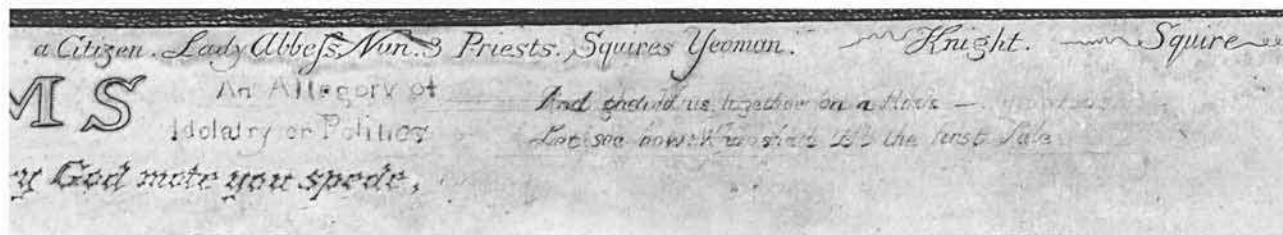 a Citizen. Lady Abbess Nun. 3 Priests. Squires Yeoman. Knight. Squire
MS
An Allegory of
Idolatry or Politics
And gatherd us together on a flock —
Let see now Who shall tell the first Tale
y God mote you spede,